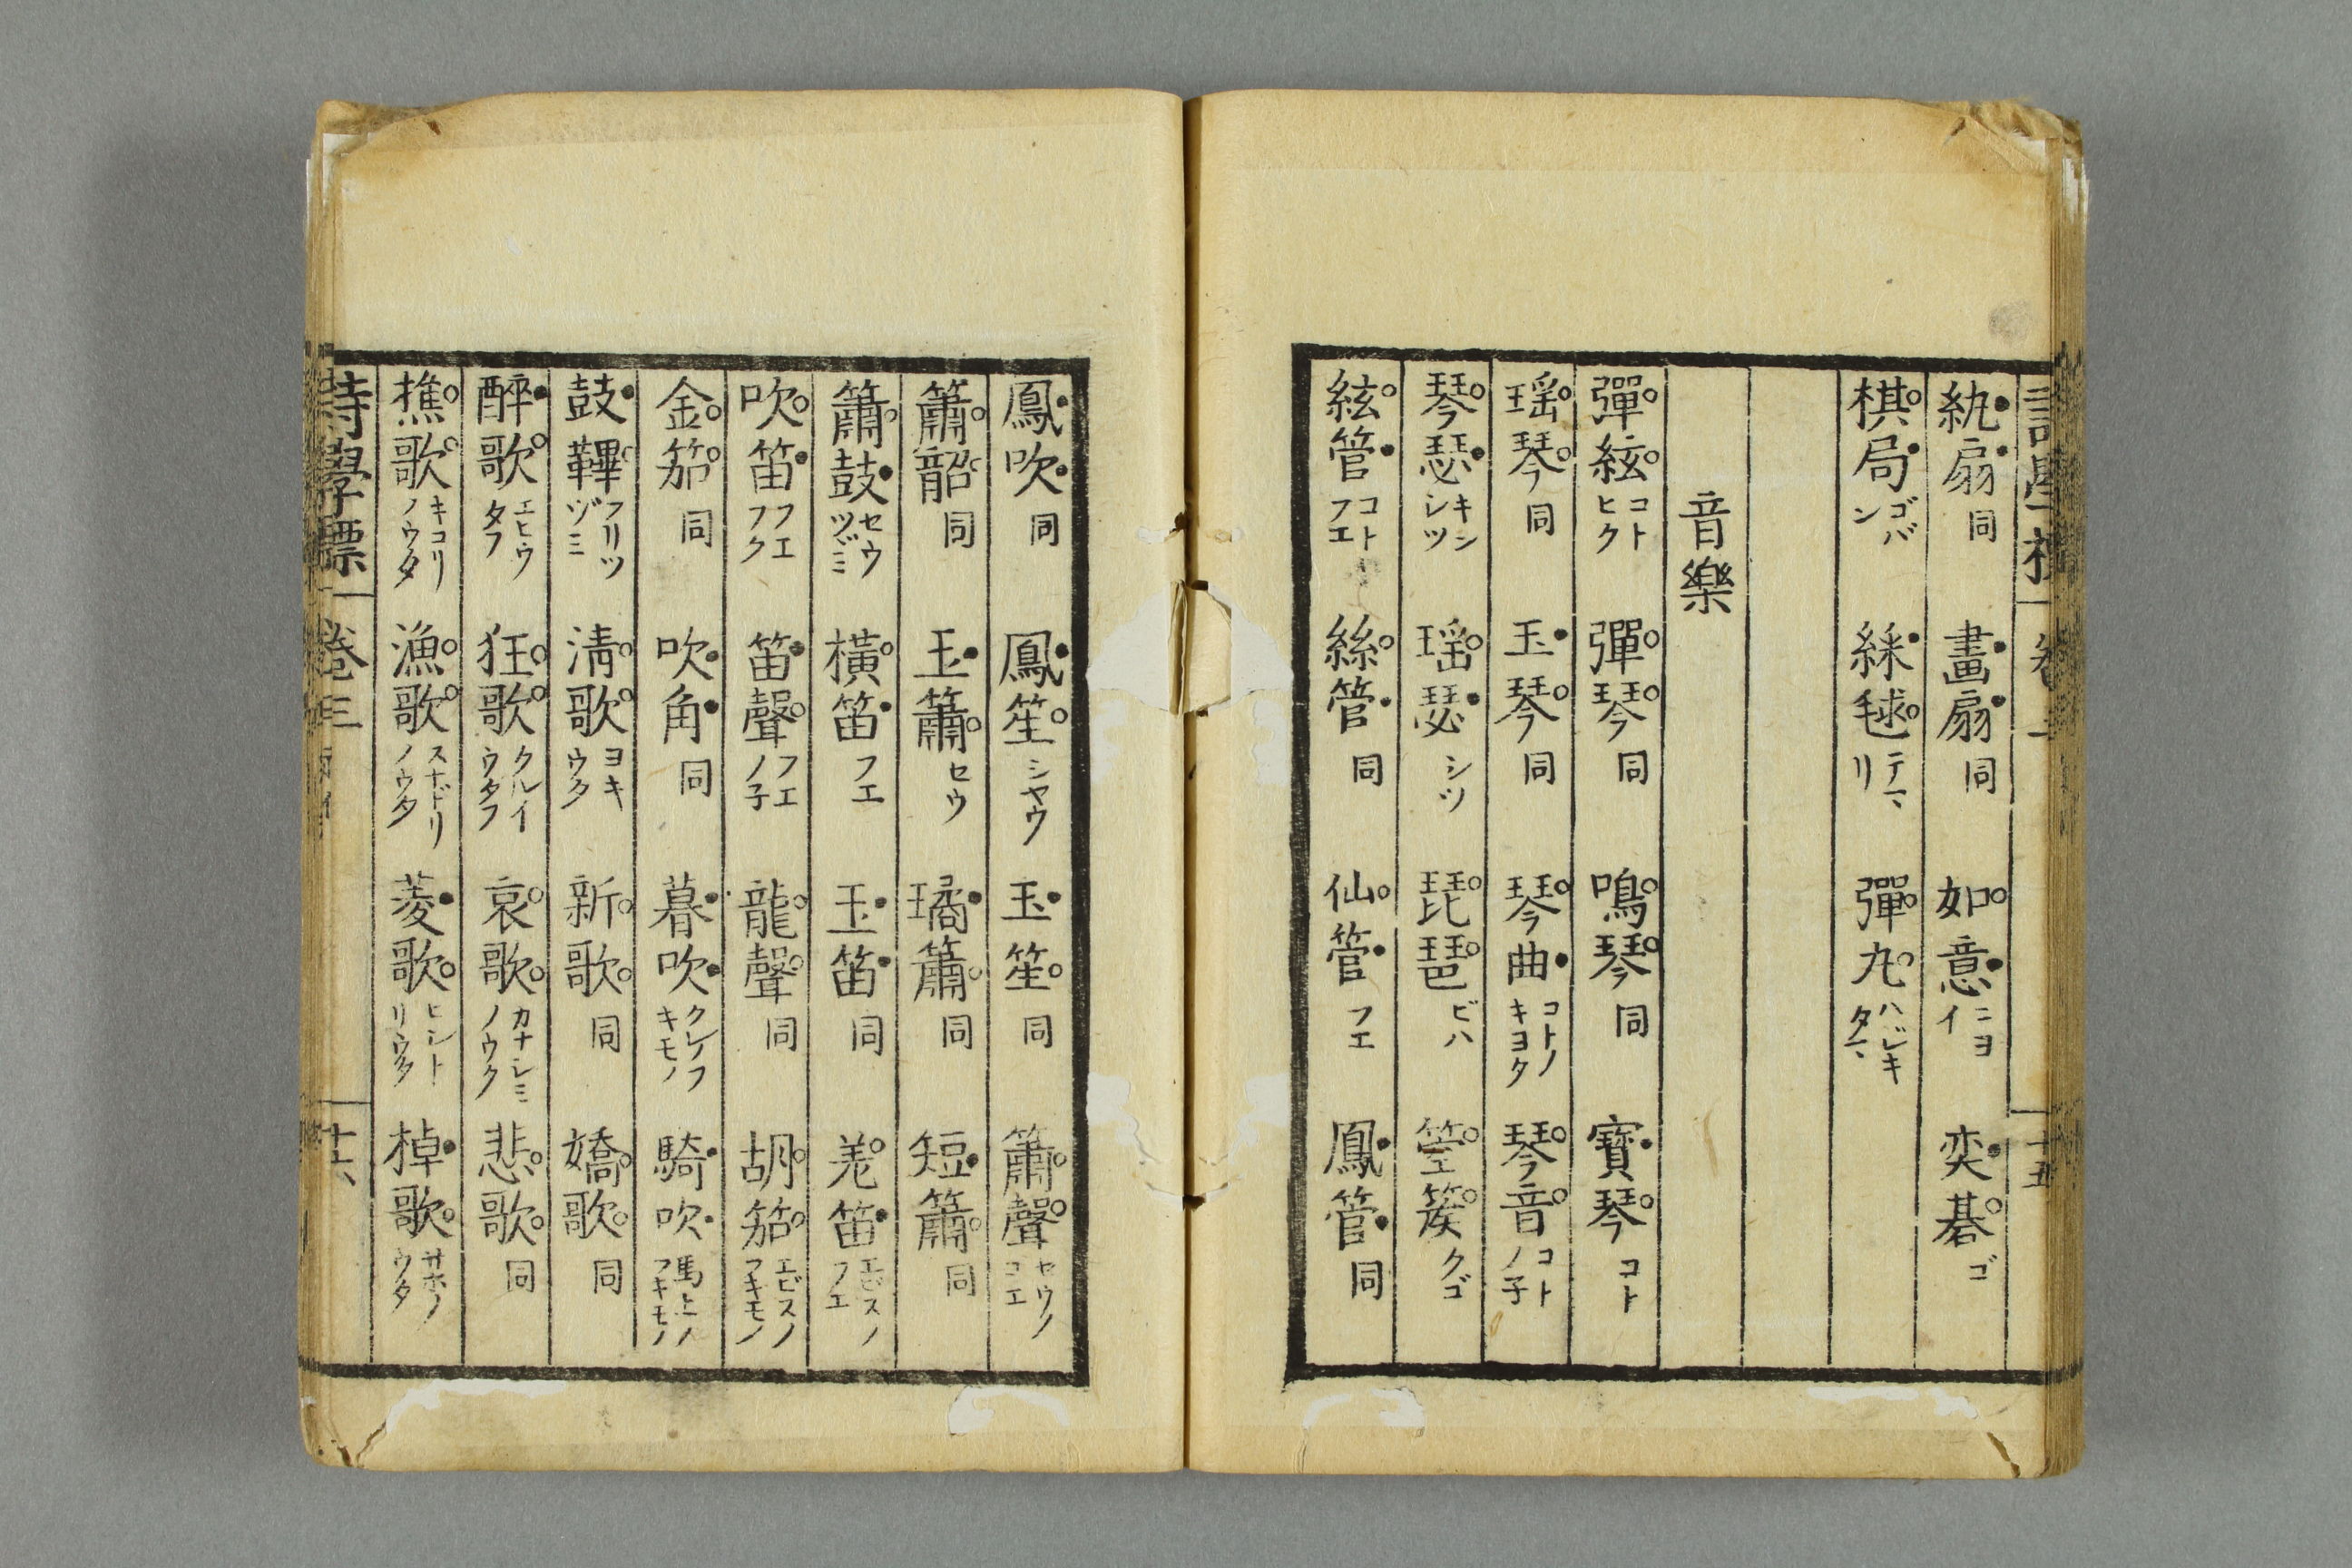 紈扇 同 畫扇 同 如意 ニヨイ 奕碁 ゴ
棋局 ゴバン 綵毬 テマリ 彈丸 ハジキタマ
音樂
彈絃 コトヒク 彈琴 同 鳴琴 同 寶琴 コト
瑶琴 同 玉琴 同 琴曲 コトノキヨク 琴音 コトノ子
琴瑟 キンシツ 瑶瑟 シツ 琵琶 ビハ 箜篌 クゴ
絃管 コトフエ 絲管 同 仙管 フエ 鳳管 同
鳳吹 同 鳳笙 シヤウ 玉笙 同 簫聲 セウノコエ
簫韶 同 玉簫 セウ 璚簫 同 短簫 同
簫鼓 セウツヅミ 橫笛 フエ 玉笛 同 羌笛 エビスノフエ
吹笛 フエフク 笛聲 フエノ子 龍聲 同 胡笳 エビスノフキモノ
金笳 同 吹角 同 暮吹 クレノフキモノ 騎吹 馬上ノフキモノ
鼓鞞 フリツヅミ 淸歌 ヨキウタ 新歌 同 嬌歌 同
醉歌 エヒウタフ 狂歌 クルイウタフ 哀歌 カナシミノウタ 悲歌 同
樵歌 キコリノウタ 漁歌 スナドリノウタ 菱歌 ヒシトリウタ 棹歌 サホノウタ
詩學標 卷三 十六